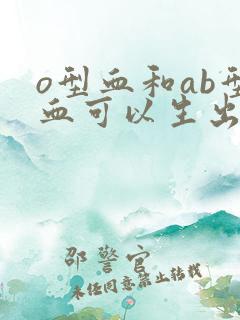 o型血和ab型
血可以生出
邵警官
未经同意禁止转载